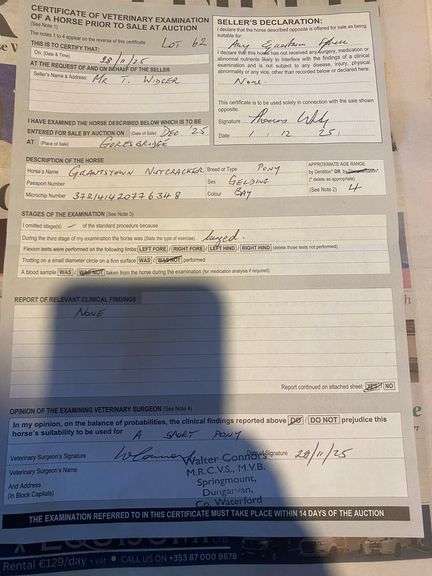 CERTIFICATE OF VETERINARY EXAMINATION
OF A HORSE PRIOR TO SALE AT AUCTION
(See Note 1)
The notes 1 to 4 appear on the reverse of this certificate
LOT 62
THIS IS TO CERTIFY THAT:
On (Date & Time) 28/11/25
AT THE REQUEST OF AND ON BEHALF OF THE SELLER
Seller's Name & Address: MR T.
I HAVE EXAMINED THE HORSE DESCRIBED BELOW WHICH IS TO BE
ENTERED FOR SALE BY AUCTION ON (Date of Sale) DEC '25
AT (Place of Sale) GORESBRIDGE
SELLER'S DECLARATION:
I declare that the horse described opposite is offered for sale as being
suitable for
Any
I declare that this horse has not received any surgery, medication or
abnormal nutrients likely to interfere with the findings of a clinical
examination and is not subject to any disease, injury, physical
abnormality or any vice, other than recorded below or declared here.
None
This certificate is to be used solely in connection with the sale shown
opposite.
Signature Thomas
Date 1. 12 25.
DESCRIPTION OF THE HORSE
Horse's Name GRANTSTOWN NUTCRACKER Breed or Type PONY
Passport Number Sex GELDING
Microchip Number Colour BAY
APPROXIMATE AGE RANGE
by Dentition* OR by
(* delete as appropriate)
(See Note 2) 4
STAGES OF THE EXAMINATION (See Note 3)
I omitted stage(s) – of the standard procedure because
During the third stage of my examination the horse was (State the type of exercise) lunged
Flexion tests were performed on the following limbs LEFT FORE / RIGHT FORE / LEFT HIND / RIGHT HIND (delete those tests not performed)
Trotting on a small diameter circle on a firm surface WAS / WAS NOT performed
A blood sample WAS / WAS NOT taken from the horse during the examination (for medication analysis if required)
REPORT OF RELEVANT CLINICAL FINDINGS
NONE
Report continued on attached sheet: YES / NO
OPINION OF THE EXAMINING VETERINARY SURGEON (See Note 4)
In my opinion, on the balance of probabilities, the clinical findings reported above DO / DO NOT prejudice this
horse's suitability to be used for A SPORT PONY
Veterinary Surgeon's Signature Signature 28/11/25
Veterinary Surgeon's Name
And Address
(in Block Capitals)
Walter Connors
M.R.C.V.S., M.V.B.
Springmount,
Dungarvan,
Co. Waterford
THE EXAMINATION REFERRED TO IN THIS CERTIFICATE MUST TAKE PLACE WITHIN 14 DAYS OF THE AUCTION
Rental €129/day + vat • CALL US ON +353 87 000 9878